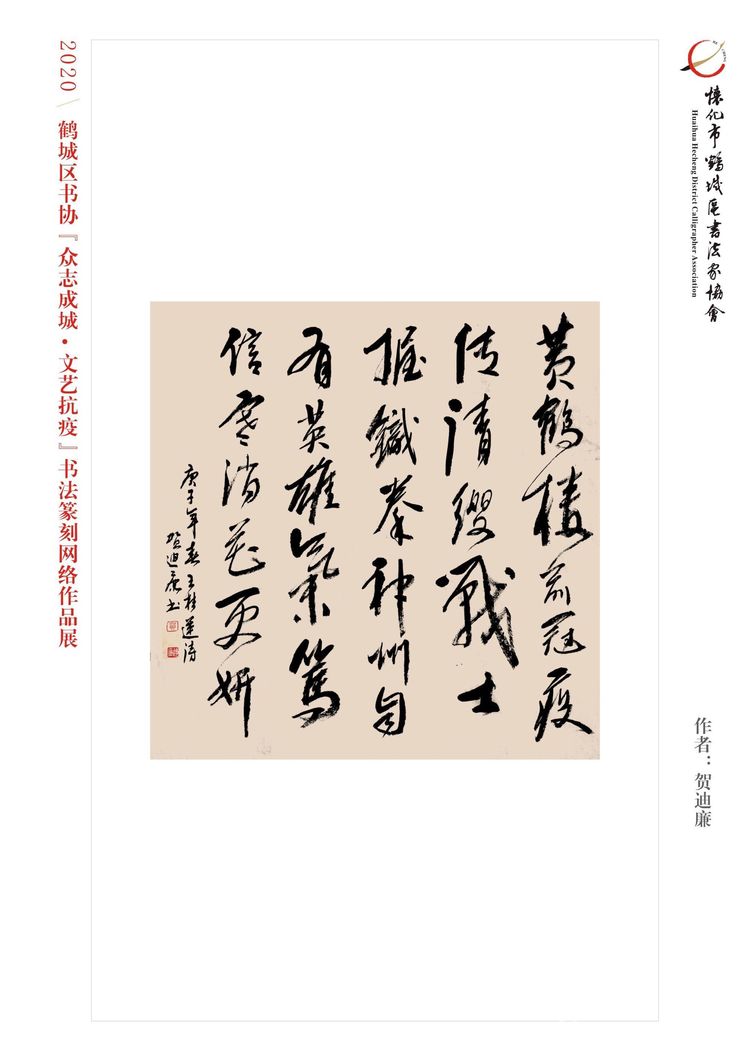 懷化市鶴城區書法家協會
Huaihua Hecheng District Calligrapher Association
黄鹤楼前冠疫
传請缨戰士
握鐵拳神州自
有英雄氣篤
信寒消花更妍
庚子年春王桂莲诗
贺迪廉书
作者：贺迪廉
2020 \ 鹤城区书协『众志成城·文艺抗疫』书法篆刻网络作品展